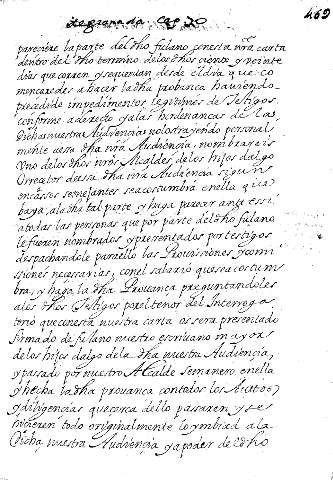 de granada Cap 20
469
pareciere la parte del dho fulano con esta nra carta
dentro del dho termino de los dhos ciento y veinte
dias que corren y se quentan desde el dia que co
mençaredes a hacer la dha probanca haviendo
precedido impedimentos legitimos de Testigos
conforme a derecho y a las hordenancas de las
dichas nuestra Audiencias no los trayendo personal
mente a essa dha nra Audiencia, nombrareis
Uno de los dhos nros Alcaldes de los hijos dalgo
O rrector de essa dha nra Audiencia, segun
en casos semejantes se acostumbra en ella que
baya, a la dha tal parte y haga parecer ante si
a todas las personas que por parte del dho fulano
le fueren nombrados y presentados por testigos
despachandole para ello las Provisiones y comi
siones necesarias, con el salario que se acostum
bra, y haga la dha Provanca preguntandoles
a los dhos Testigos por el tenor del Interroga
torio que con esta nuestra carta os sera presentado
firmado de fulano nuestro escrivano mayor
de los hijos dalgo de la dha nuestra Audiencia,
y passado por nuestro Alcalde semanero en ella
y hecha la dha provanca con todos los Autos
y diligencias que cerca dello passaren y se
hicieren todo originalmente lo ymbiad a la
dicha nuestra Audiencia y a poder del dho